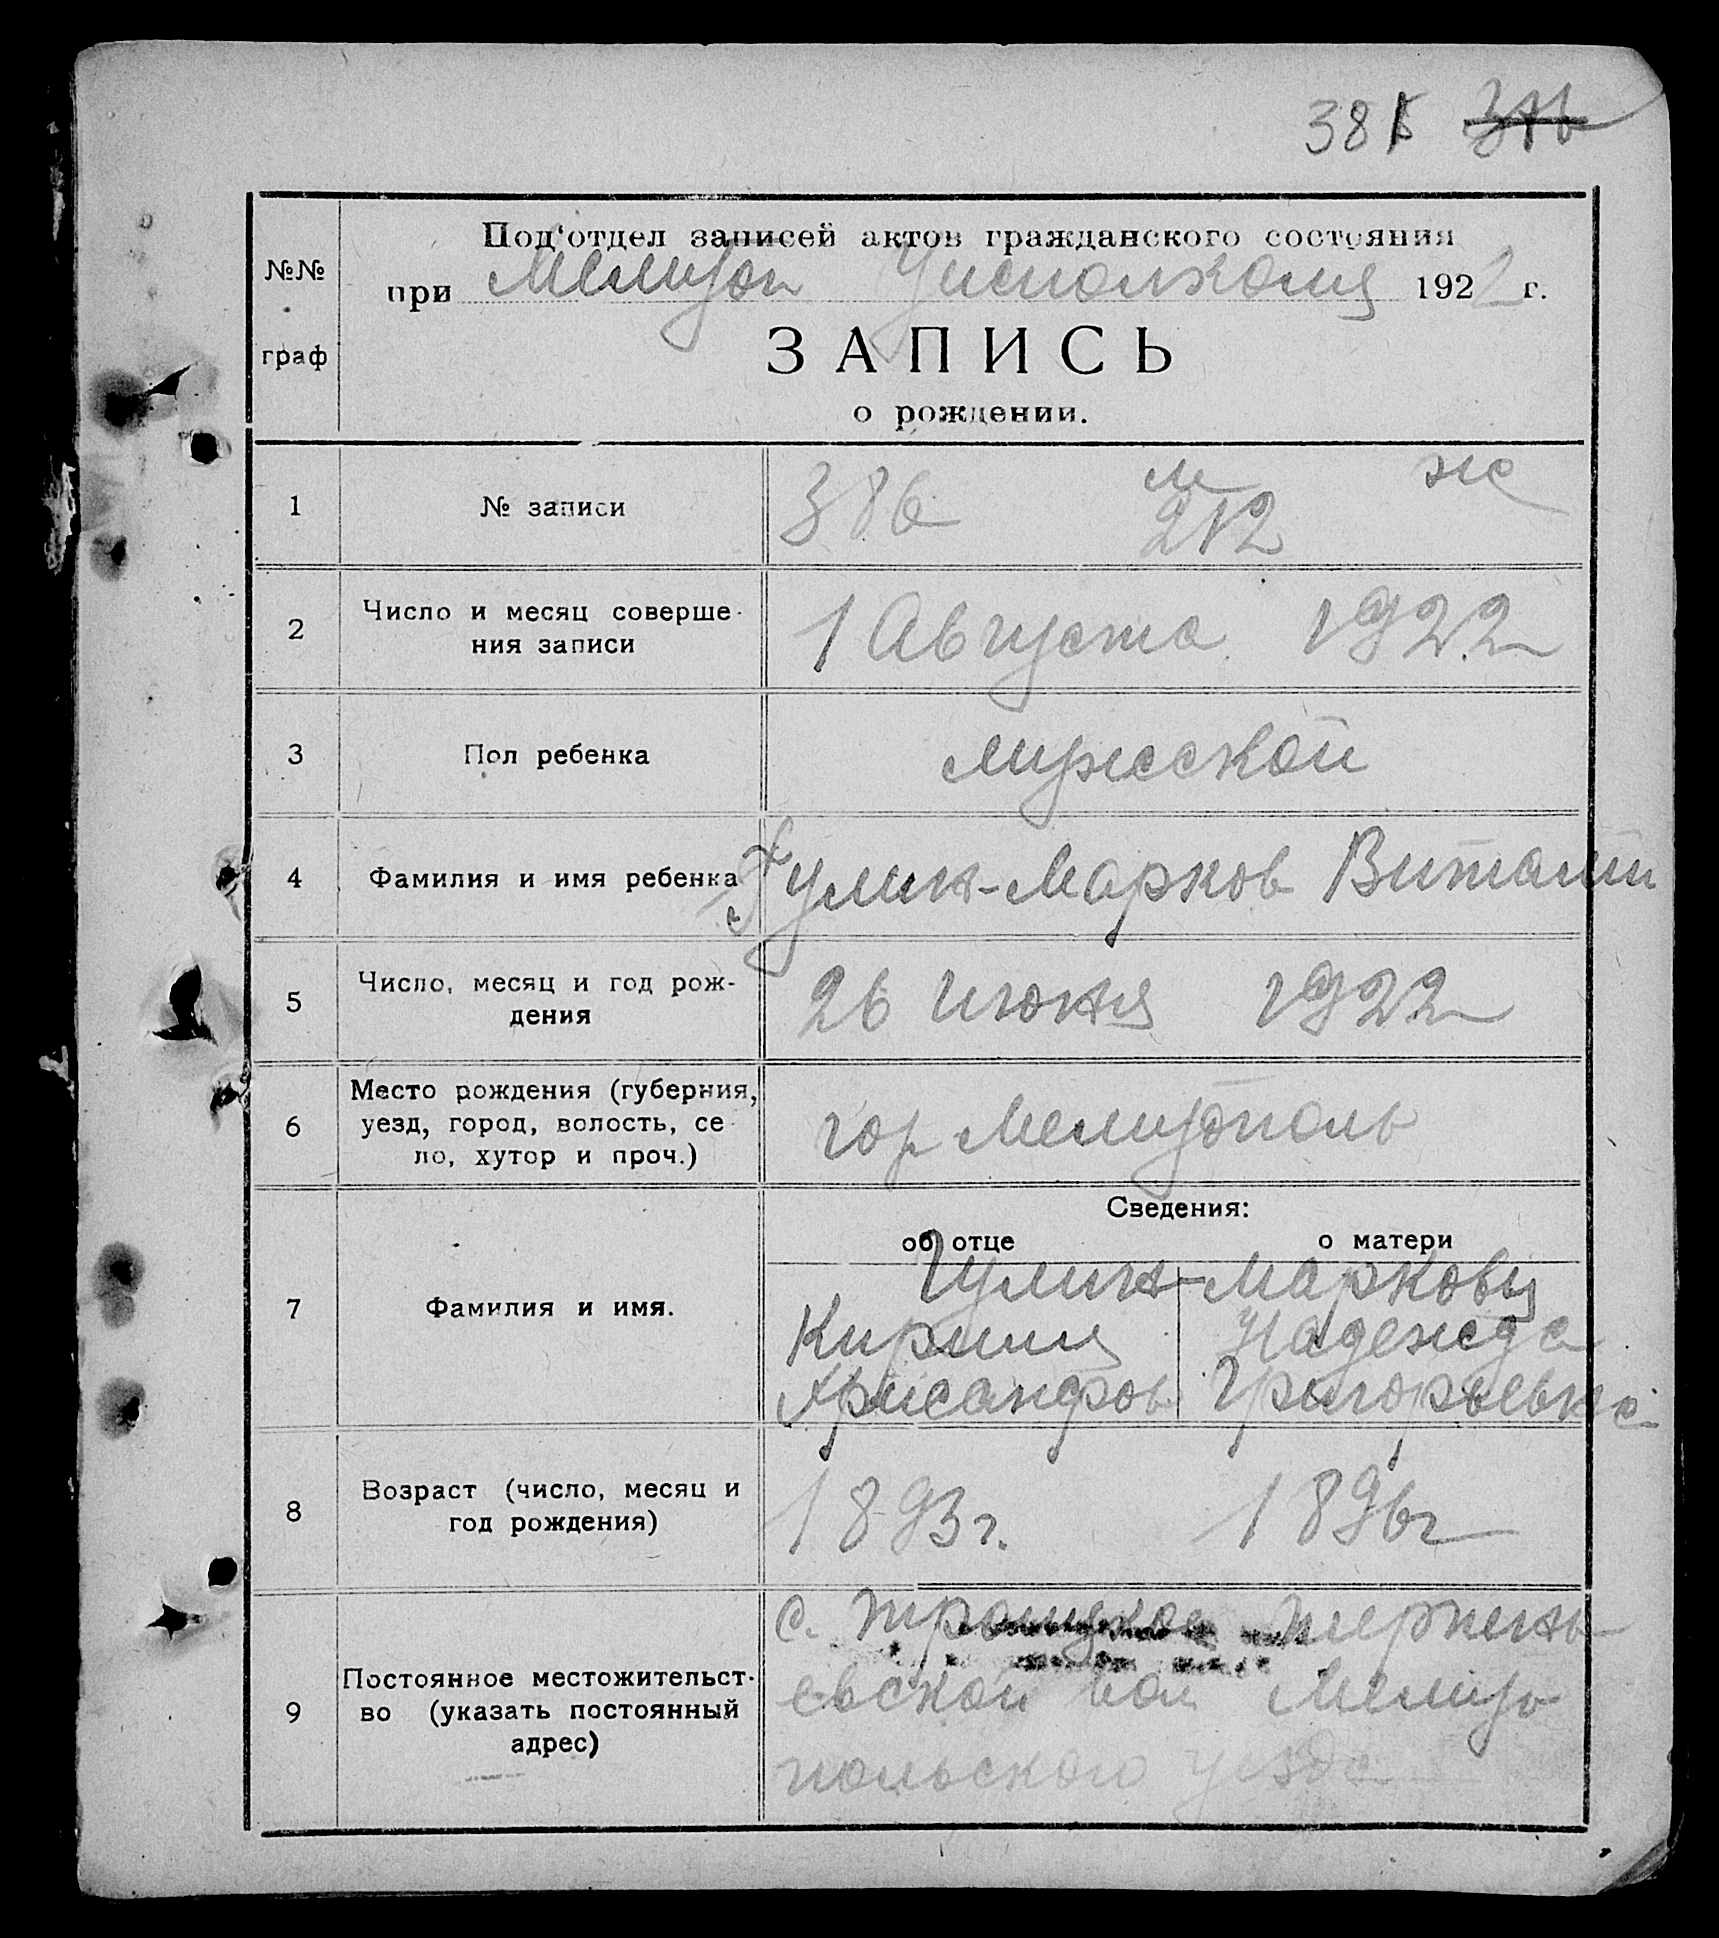 38
Под'отдел записей актов гражданского состояния
№№ при Мелитоп Уисполкома 1922 г.
граф ЗАПИСЬ
о рождении.
м ж
1 № записи 386 212
2 Число и месяц соверше- 1 Августа 1922
ния записи
3 Пол ребенка мужской
4 Фамилия и имя ребенка Гулик-Марков Виталий
5 Число, месяц и год рож- 26 июня 1922
дения
Место рождения (губерния,
6 уезд, город, волость, се- гор Мелитополь
ло, хутор и проч.)
Сведения:
об отце о матери
Гулик-Марковы
7 Фамилия и имя. Кирилл Надежда
Хрисанфов Григорьевна
8 Возраст (число, месяц и 1893 г. 1896 г
год рождения)
с. Троицкое Терпень
Постоянное местожительст- евской вол Мелито
9 во (указать постоянный польского уезда
адрес)